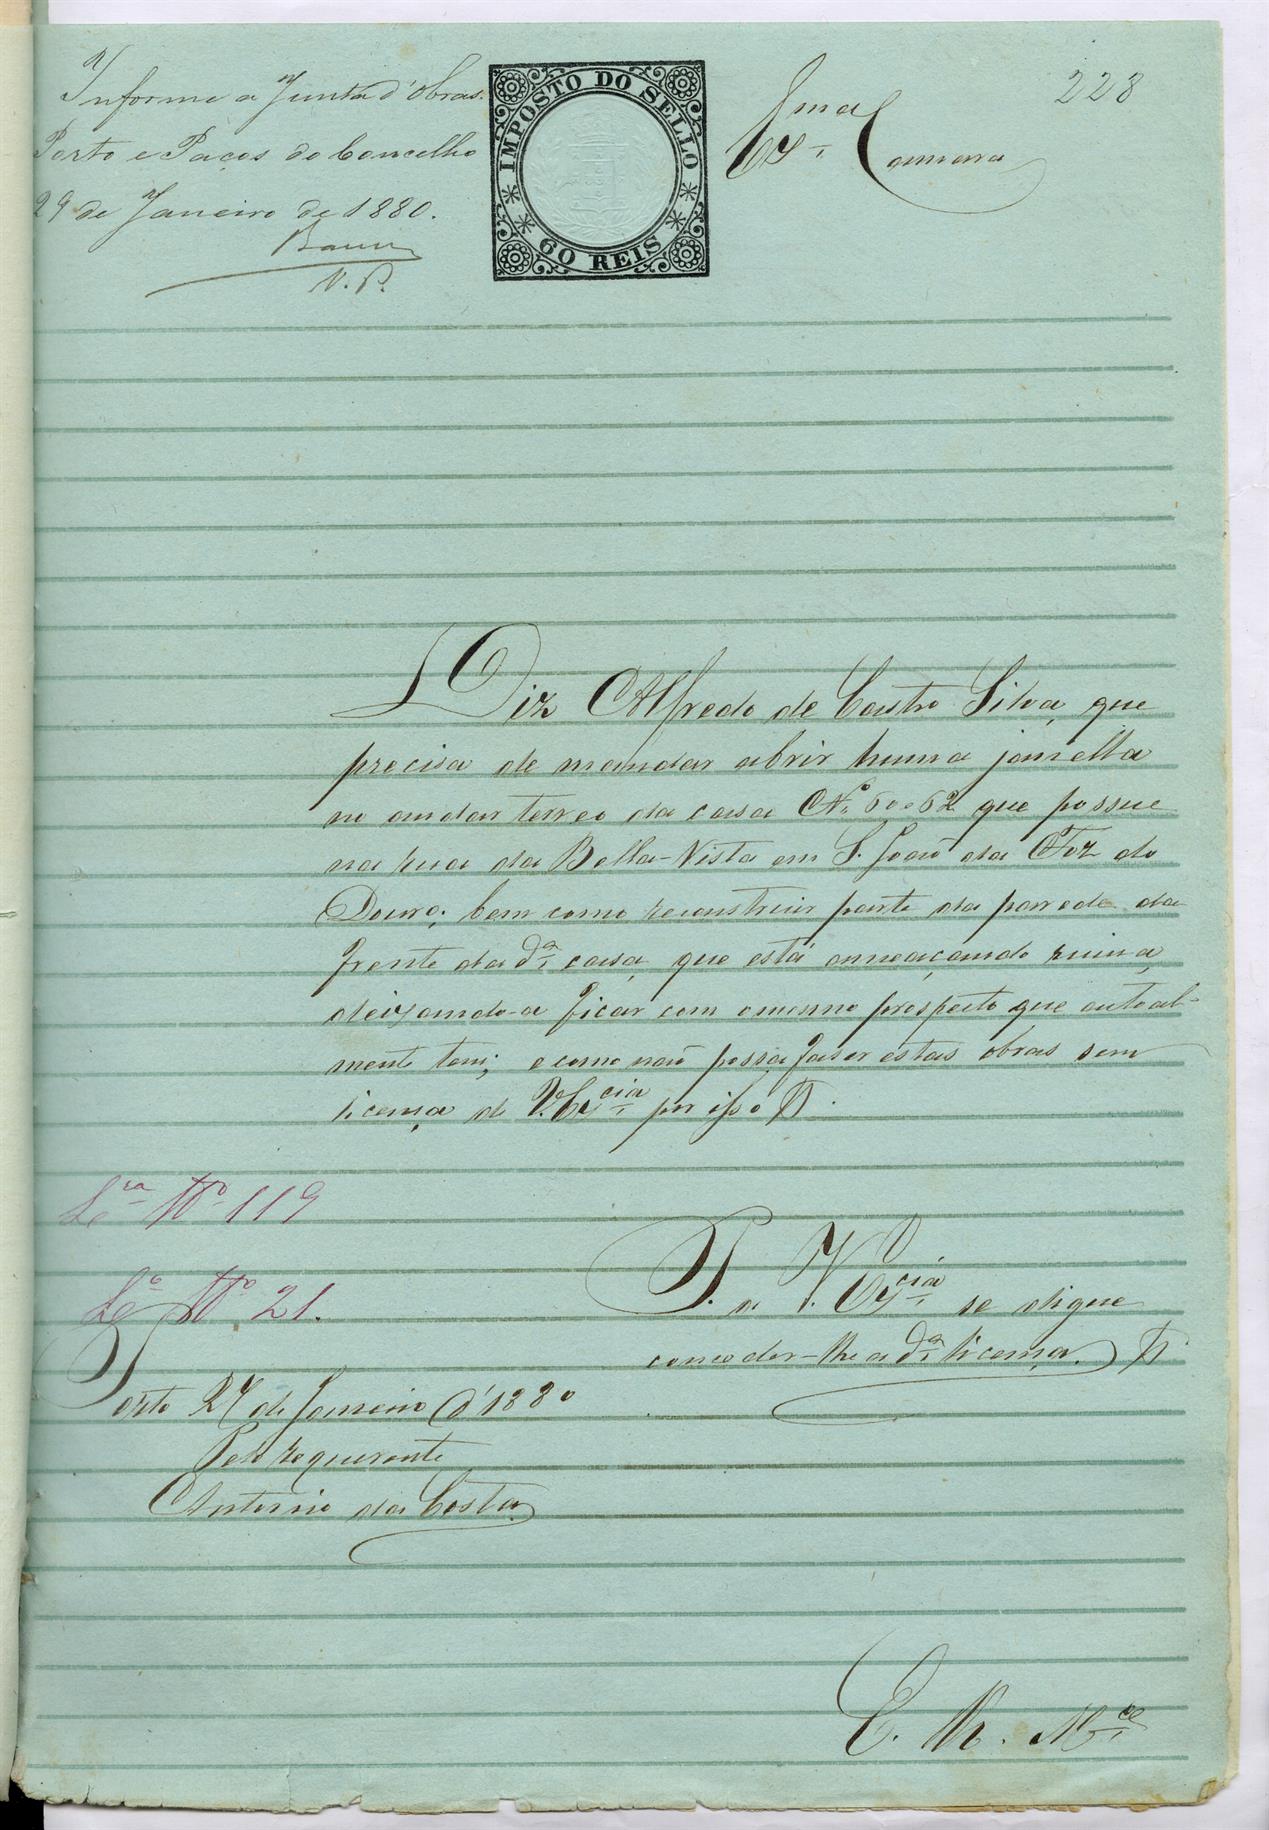 Informe a Junta d'obras.
Porto e Paços do Concelho
29 de Janeiro de 1880.
V. P.
IMPOSTO DO SELLO
60 REIS
Exma Camara
228
Diz Alfredo de Castro Silva, que
precisa de mandar abrir huma janella
no andar terreo da casa No. 60 e 62 que possue
na rua da Bella-Vista em S. João da Foz do
Douro; bem como reconstruir parte da parede da
frente da da. casa, que está ameaçando ruina,
deixando-a ficar com o mesmo prospecto que autoal-
mente tem; e como não possa faser estas obras sem
licença de V. Excia por isso P.
Lca No 119
Lo No 21.
P. a V. Excia se digne
conceder-lhe a da. licença.
Porto 27 de Janeiro d'1880
Pelo requerente
Antonio da Costa
E. R. Mce